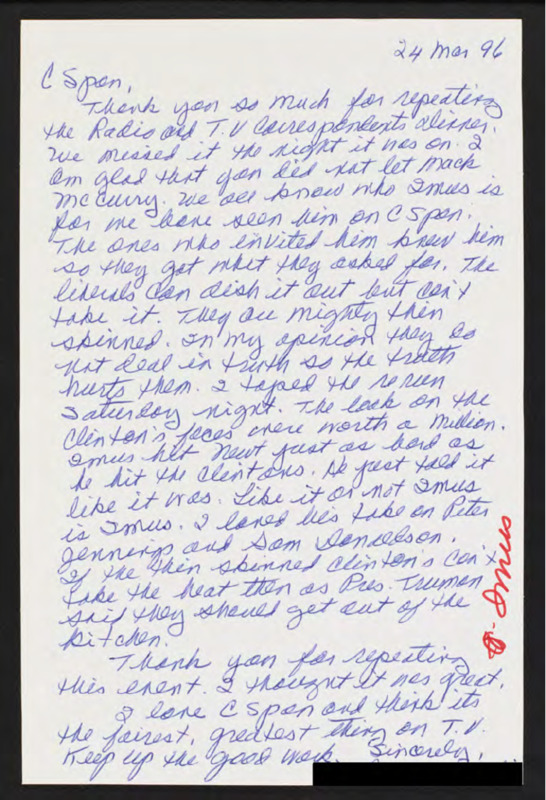 24 Mar 96
C Span,
Thank you so much for repeating
the Radio and T.V Correspondents dinner.
We missed it the night it was on. I
am glad that you did not let Mack
McCurry. We all know who Imus is
for we have seen him on C Span.
The ones who invited him knew him
so they got what they asked for. The
liberals can dish it out but can't
take it. They are mighty thin
skinned. In my opinion they do
not deal in truth so the truth
hurts them. I taped the rerun
Saturday night. The look on the
Clinton's faces were worth a million.
Imus hit Newt just as hard as
he hit the Clintons. He just told it
like it was. Like it or not Imus
is Imus. I loved his take on Peter
Jennings and Sam Donaldson.
If the thin skinned Clinton's can't
take the heat then as Pres. Truman
said they should get out of the
kitchen.
Thank you for repeating
this event. I thought it was great.
I love C Span and think its
the fairest, greatest thing on T.V.
Keep up the good work. Sincerely,
Imus